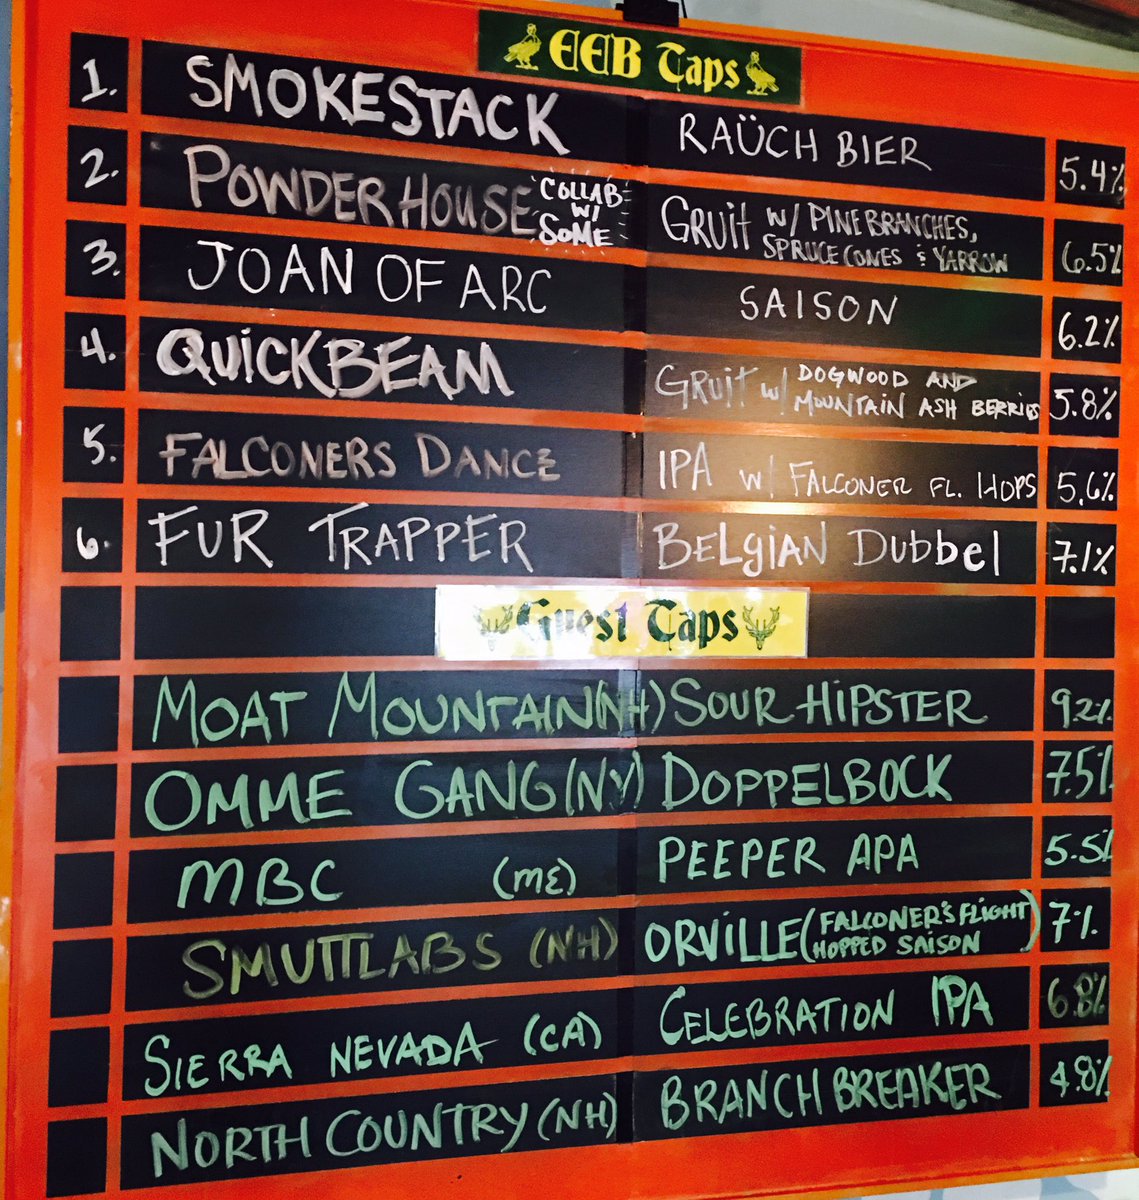 EEB Taps
1. SMOKESTACK RAÜCH BIER 5.4%
2. POWDER HOUSE COLLAB W/ SOME GRUIT W/ PINE BRANCHES, SPRUCE CONES & YARROW 6.5%
3. JOAN OF ARC SAISON 6.2%
4. QUICKBEAM GRUIT W/ DOGWOOD AND MOUNTAIN ASH BERRIES 5.8%
5. FALCONERS DANCE IPA W/ FALCONER FL. HOPS 5.6%
6. FUR TRAPPER BELGIAN DUBBEL 7.1%
Guest Taps
MOAT MOUNTAIN (NH) SOUR HIPSTER 9.2%
OMME GANG (NY) DOPPELBOCK 7.5%
MBC (ME) PEEPER APA 5.5%
SMUTTLABS (NH) ORVILLE (FALCONER'S FLIGHT HOPPED SAISON) 7%
SIERRA NEVADA (CA) CELEBRATION IPA 6.8%
NORTH COUNTRY (NH) BRANCH BREAKER 4.8%